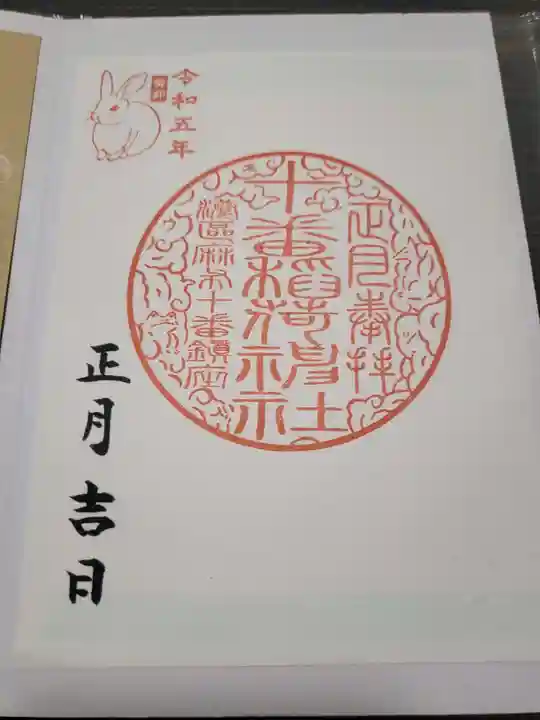 令和五年
癸卯
正月奉拝
十番稲荷神社
港区麻布十番鎮座
正月吉日